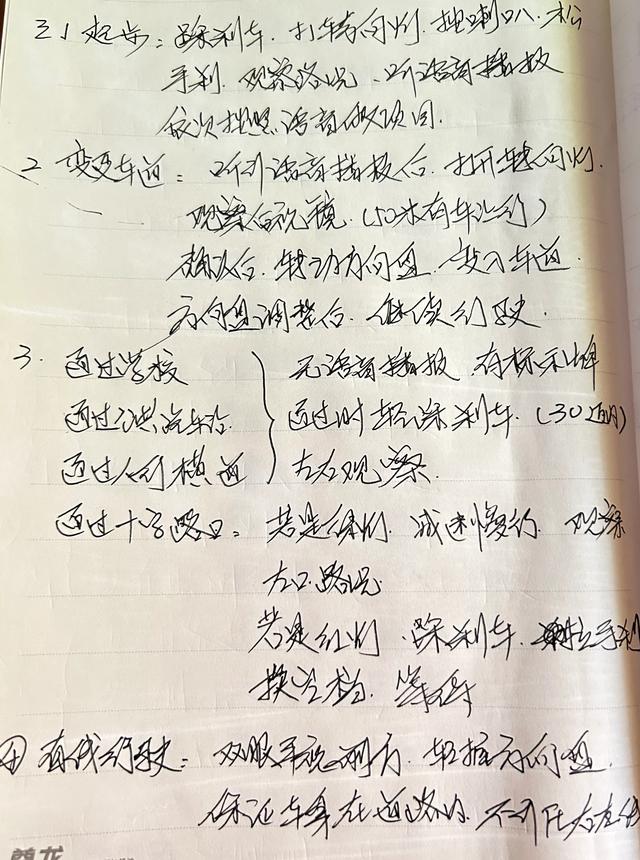 3.1 起步：踩刹车．打转向灯．按喇叭．松
手刹．观察路况．听语音播报
依次按照语音做项目．
2 变更车道：听到语音播报后．打开转向灯．
观察后视镜．(50米有车让行)
确认后．转动方向盘．驶入车道．
方向盘调整后．继续行驶．
3. 通过学校 无语音播报 有标示牌
通过公共汽车站 通过时轻踩刹车．(30迈内)
通过人行横道 左右观察．
通过十字路口：若是绿灯．减速慢行．观察
左右路况
若是红灯．踩刹车．拉手刹
换空档．等待
④ 直线行驶：双眼平视前方．轻握方向盘．
保证车身在道路内．不可压左右线
尊龙